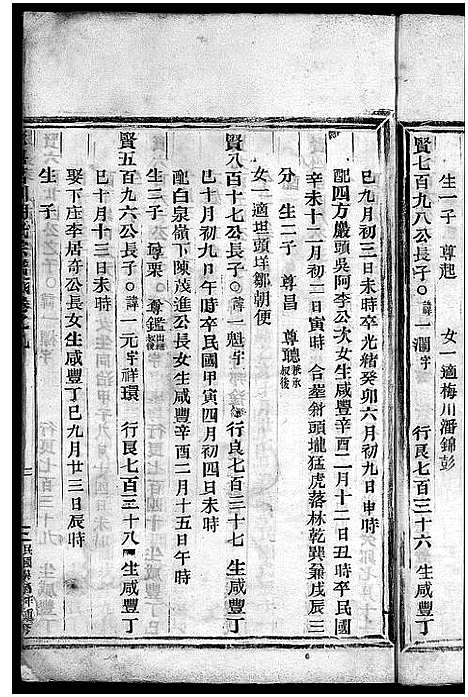 生一子　尊起　女一適梅川潘錦彭
賢七百九八公長子○諱一瀾字　行良七百三十六　生咸豐丁
巳九月初三日未時卒光緒癸卯六月初九日申時
配四方嚴頭吳阿李公次女生咸豐辛酉二月十二日丑時卒民國
辛未十二月初二日寅時　合塟對頭壠猛虎落林乾巽兼戌辰三
分　生二子　尊昌　尊聰兼承叔後
女一適坦頭垟鄒朝使
賢八百十七公長子○諱一魁字　行良七百三十七　生咸豐丁
巳十月初九日午時卒民國甲寅四月初四日未時
配白泉嶺下陳茂進公長女生咸豐辛酉二月十五日午時
生二子　尊栗　尊鑑出繼叔後
賢五百九六公長子○諱一元字祥環　行良七百三十八　生咸豐丁
巳十月十三日未時
娶下庄李居奇公長女生咸豐丁巳九月廿三日辰時
生子